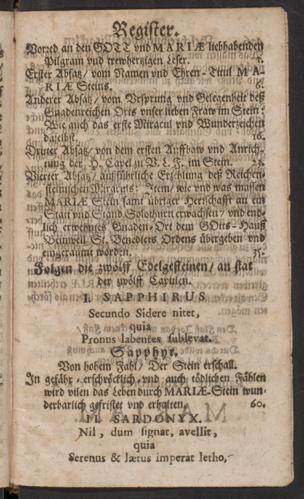 Register.
Vorred an den GOTT vnd MARIÆ liebhabenden
Pilgram vnd trewhertzigen Leser.
Erster Absatz / vom Namen vnd Ehren-Titul MA-
RIÆ Steins.
Anderer Absatz / vom Vrsprung vnd Gelegenheit deß
Gnadenreichen Orts vnser lieben Fraw im Stein;
Wie auch das erste Miracul vnd Wunderzeichen
daselbst. 16.
Dritter Absatz / von dem ersten Auffbaw vnd Anrich-
tung der H. Capel zu V. L. F. im Stein. 23.
Vierter Absatz / außführliche Erzehlung deß Reichen-
steinischen Miraculs: Item / wie vnd was massen
MARIÆ Stein samt übriger Herrschafft an ein
Statt vnd Stand Solothurn erwachsen / vnd end-
lich erwehntes Gnaden-Ort dem GOtts-Hauß
Beinweil St. Benedicts Ordens übergeben vnd
eingeraumt worden. 35.
Folgen die zwölff Edelgesteinen / an stat
der zwölff Capitlen.
I. SAPPHIRUS
Secundo Sidere nitet,
quia
Pronus labentes sublevat.
Sapphyr.
Von hohem Fahl / Der Stein erschall.
In gefähr- erschröcklich- vnd auch tödlichen Fählen
wird vilen das Leben durch MARIÆ-Stein wun-
derbarlich gefristet vnd erhalten. 60.
II. SARDONYX.
Nil, dum signat, avellit,
quia
Serenus & lætus imperat letho,